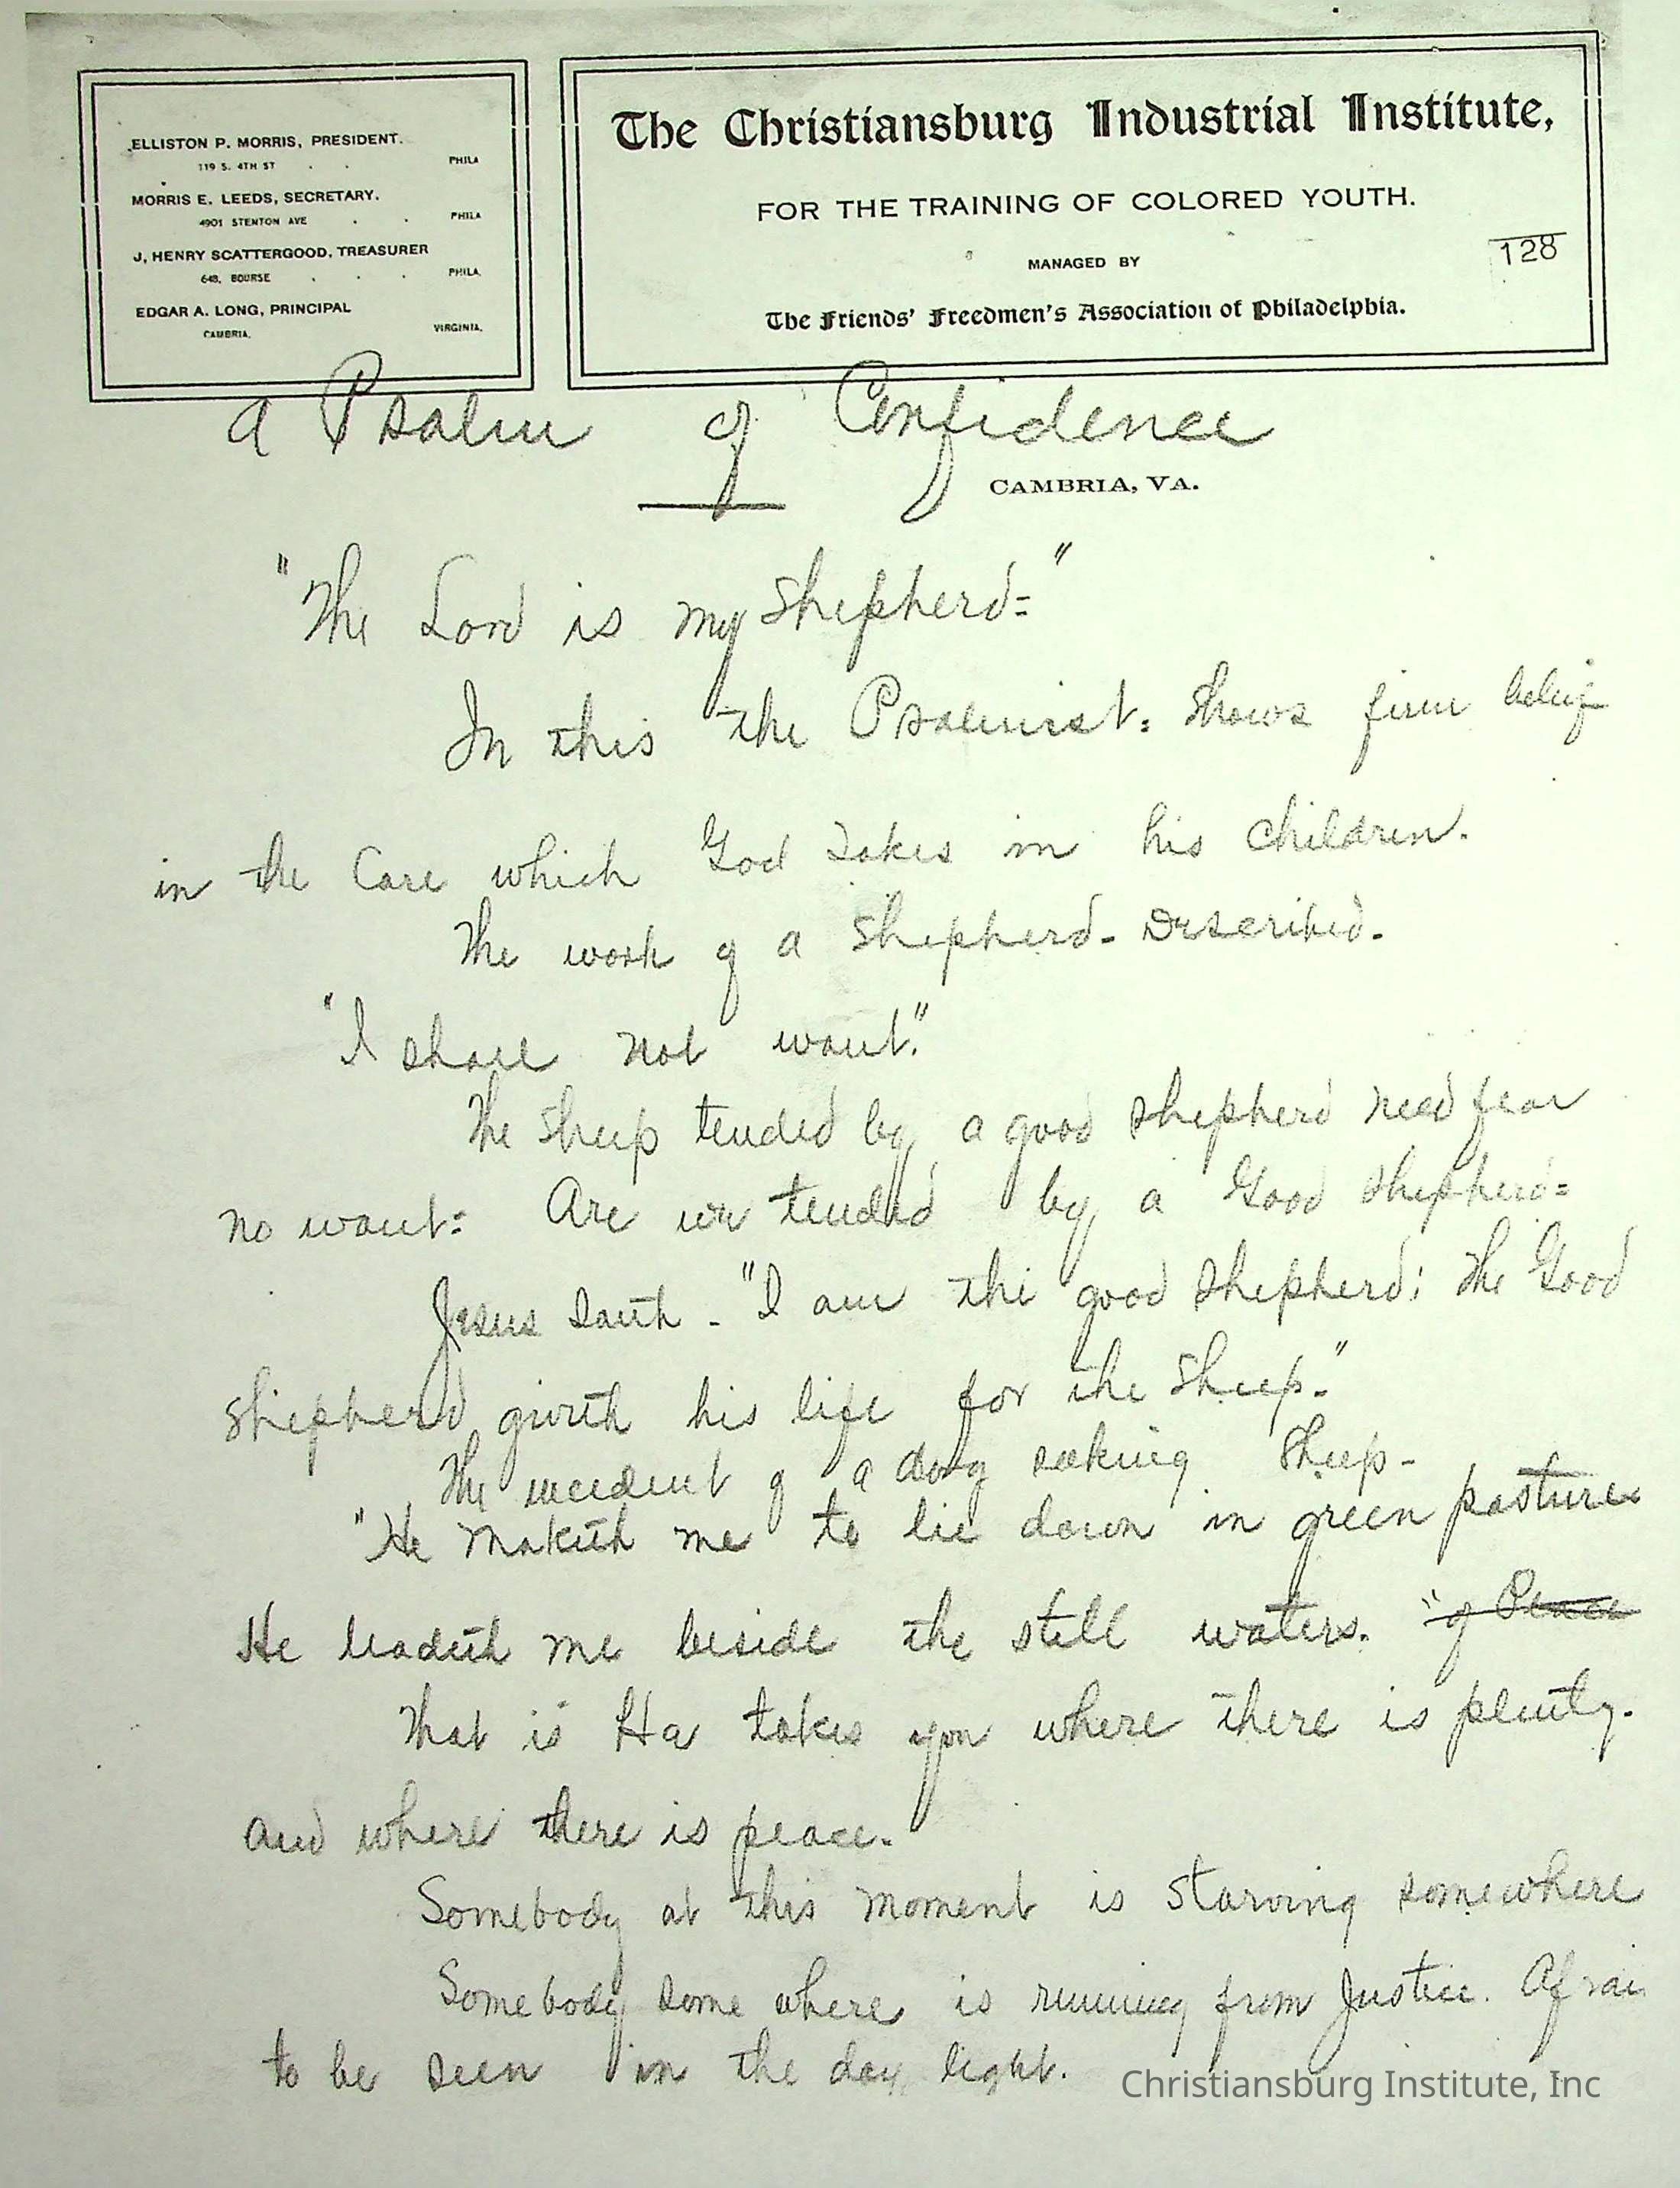 ELLISTON P. MORRIS, PRESIDENT.
119 S. 4TH ST . . PHILA
MORRIS E. LEEDS, SECRETARY.
4901 STENTON AVE . . PHILA
J, HENRY SCATTERGOOD, TREASURER
648, BOURSE . . . PHILA.
EDGAR A. LONG, PRINCIPAL
CAMBRIA, VIRGINIA.
The Christiansburg Industrial Institute,
FOR THE TRAINING OF COLORED YOUTH.
MANAGED BY
128
The Friends' Freedmen's Association of Philadelphia.
A Psalm of Confidence
CAMBRIA, VA.
"The Lord is my Shepherd="
In this the Psalmist: shows firm belief
in the Care which God takes in his children.
The work of a shepherd- Described.
"I shall not want."
The sheep tended by a good shepherd need fear
no want: Are we tended by a Good shepherd=
Jesus saith - "I am the good shepherd; the Good
shepherd giveth his life for the sheep."
The incident of a dog seeking sheep-
"He maketh me to lie down in green pastures
He leadeth me beside the still waters. "of Peace
That is He takes you where there is plenty.
and where there is peace.
Somebody at this moment is starving somewhere
Somebody some where is running from Justice. Afrai
to be seen in the day light.
Christiansburg Institute, Inc